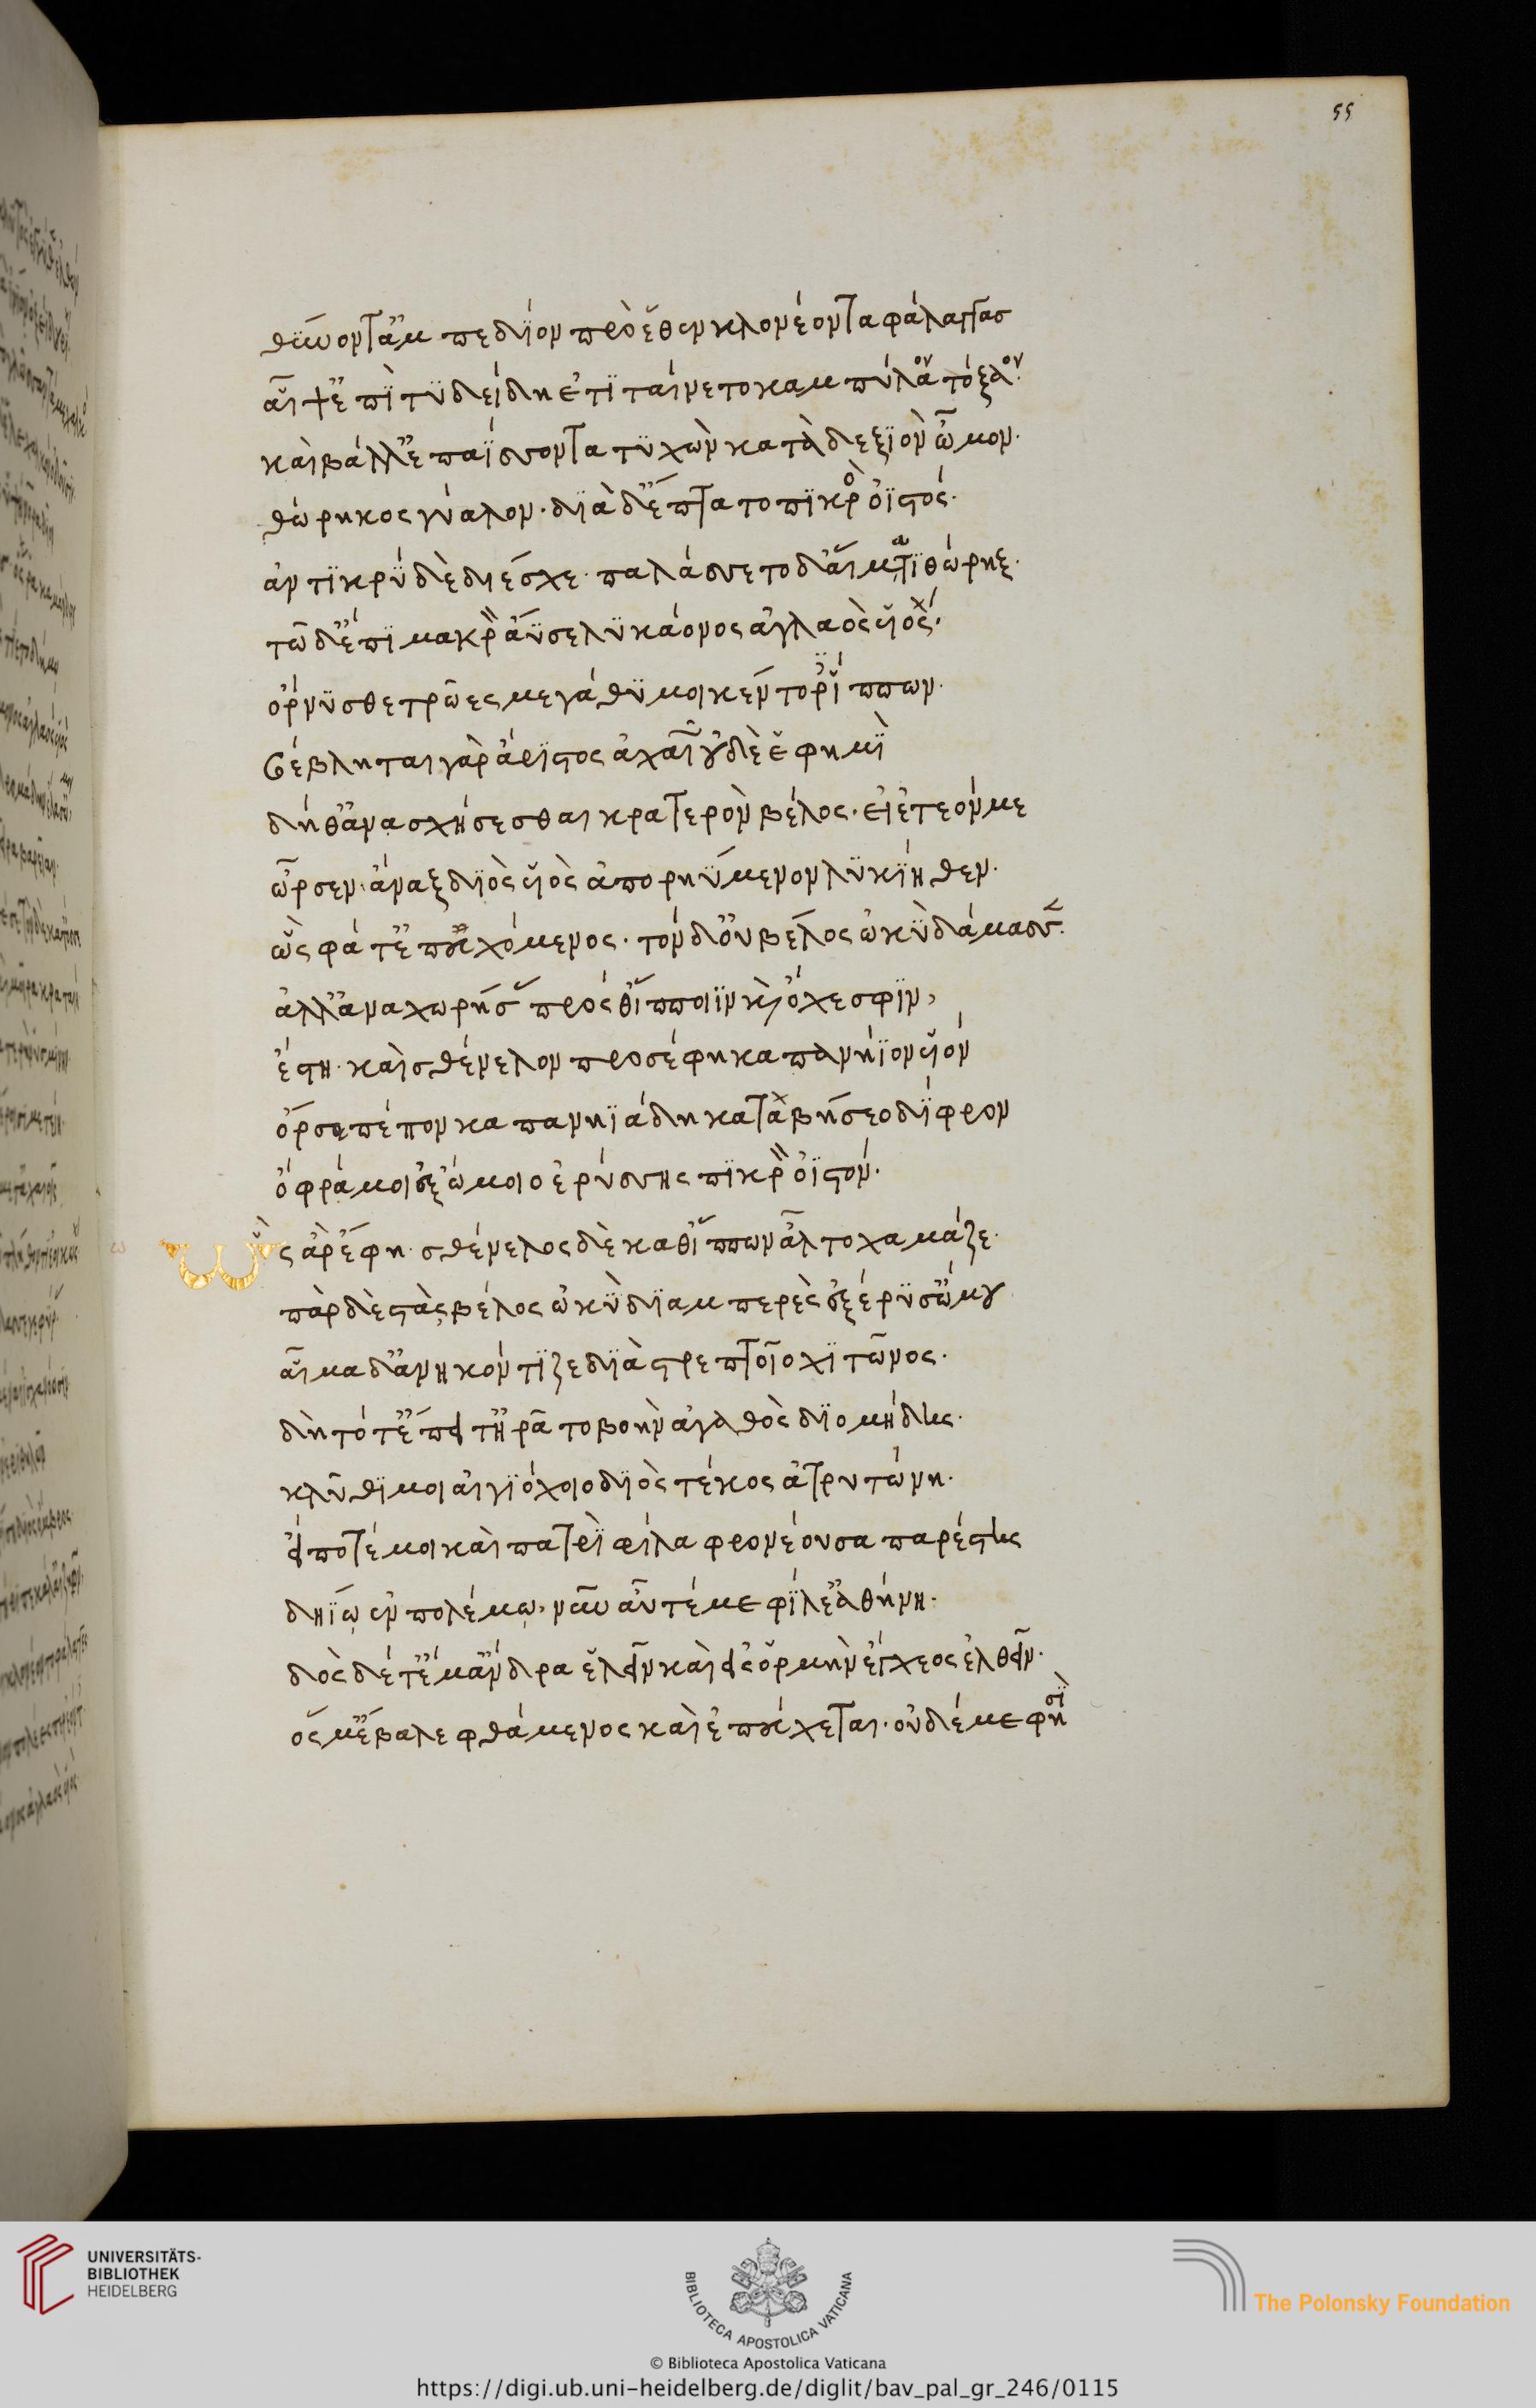 θύνοντ' ἂμ πεδίον πρὸ ἕθεν κλονέοντα φάλαγγας
αἶψ' ἐπὶ τυδείδη ἐτιταίνετο καμπύλον τόξον·
καὶ βάλλ' ἐπαΐσσοντα τυχὼν κατὰ δεξιὸν ὦμον·
θώρηκος γύαλον· διὰ δ' ἔπτατο πικρὸς ὀϊστός·
ἀντικρὺ δὲ διέσχε· παλάσσετο δ' αἵματι θώρηξ·
τῶ δ' ἐπὶ μακρὰ ἄϋσε λυκάονος ἀγλαὸς υἱός·
ὄρνυσθε τρῶες μεγάθυμοι κέντορες ἵππων·
βέβληται γὰρ ἄριστος ἀχαιῶν οὐδὲ ἕ φημὶ
δήθ' ἀνασχήσεσθαι κρατερὸν βέλος· εἰ ἐτεόν με
ὦρσεν· ἄναξ διὸς υἱὸς ἀπορνύμενον λυκίηθεν·
ὣς φάτ' ἐπευχόμενος· τόν δ' οὐ βέλος ὠκὺ δάμασσεν·
ἀλλ' ἀναχωρήσας πρόσθ' ἵπποιϊν καὶ ὄχεσφιν,
ἔστη· καὶ σθένελον προσέφη καπανήϊον υἱόν
ὄρσο πέπον καπανηϊάδη καταβήσεο δίφρου
ὄφρά μοι ἐξ ὤμοιο ἐρύσσης πικρὸν ὀϊστόν·
ὣς ἄρ' ἔφη· σθένελος δὲ καθ' ἵππων ἆλτο χαμάζε·
πὰρ δὲ στὰς βέλος ὠκὺ διαμπερὲς ἐξέρυσ' ὤμου
αἷμα δ' ἀνηκόντιζε διὰ στρεπτοῖο χιτῶνος·
δὴ τότ' ἔπειτ' ἠρᾶτο βοὴν ἀγαθὸς διομήδης·
κλῦθί μοι αἰγιόχοιο διὸς τέκος ἀτρυτώνη·
εἴποτέ μοι καὶ πατρὶ φίλα φρονέουσα παρέστης
δηΐω ἐν πολέμω, νῦν αὖτέ με φίλε ἀθήνη·
δὸς δέ τέ μ' ἄνδρα ἕλειν καὶ εἰς ὁρμὴν ἔγχεος ἐλθεῖν·
ὅς μ' ἔβαλε φθάμενος καὶ ἐπεύχεται· οὐδέ με φησὶ
55
UNIVERSITÄTS-
BIBLIOTHEK
HEIDELBERG
BIBLIOTECA APOSTOLICA VATICANA
The Polonsky Foundation
© Biblioteca Apostolica Vaticana
https://digi.ub.uni-heidelberg.de/diglit/bav_pal_gr_246/0115